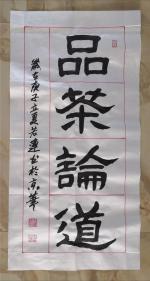 品茶論道
歲在庚子立夏若連書於京華